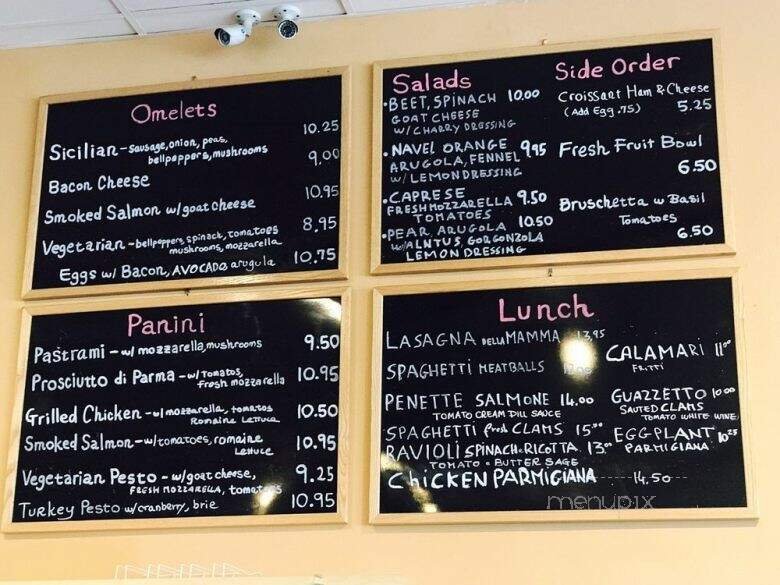 Omelets
Sicilian - sausage, onion, peas, 10.25
bellpeppers, mushrooms
Bacon Cheese 9.00
Smoked Salmon w/goat cheese 10.95
Vegetarian - bellpeppers, spinach, tomatoes 8.95
mushrooms, mozzarella
Eggs w/ Bacon, AVOCADO arugula 10.75
Panini
Pastrami - w/ mozzarella, mushrooms 9.50
Prosciutto di Parma - w/ tomatos, 10.95
fresh mozzarella
Grilled Chicken - w/ mozzarella, tomatos 10.50
Romaine Lettuce
Smoked Salmon - w/tomatoes, romaine 10.95
Lettuce
Vegetarian Pesto - w/ goat cheese, 9.25
FRESH MOZZARELLA, tomatoes
Turkey Pesto w/cranberry, brie 10.95
Salads
• BEET, SPINACH 10.00
GOAT CHEESE
W/ CHARRY DRESSING
• NAVEL ORANGE 9.95
ARUGOLA, FENNEL
W/ LEMON DRESSING
• CAPRESE 9.50
FRESH MOZZARELLA
TOMATOES
• PEAR, ARUGOLA 10.50
W/ALNTUS, GORGONZOLA
LEMON DRESSING
Side Order
Croissant Ham & Cheese
(Add Egg .75) 5.25
Fresh Fruit Bowl
6.50
Bruschetta w Basil
Tomatoes
6.50
Lunch
LASAGNA DELLA MAMMA 13,95
SPAGHETTI MEATBALLS
PENETTE SALMONE 14.00
TOMATO CREAM DILL SAUCE
SPAGHETTI fresh CLAMS 15.00
RAVIOLI SPINACH & RICOTTA 13.00
TOMATO • BUTTER SAGE
CHICKEN PARMIGIANA 14,50
CALAMARI 11.00
FRITTI
GUAZZETTO 10.00
SAUTED CLAMS
TOMATO WHITE WINE
EGGPLANT 10.25
PARMIGIANA
menupix